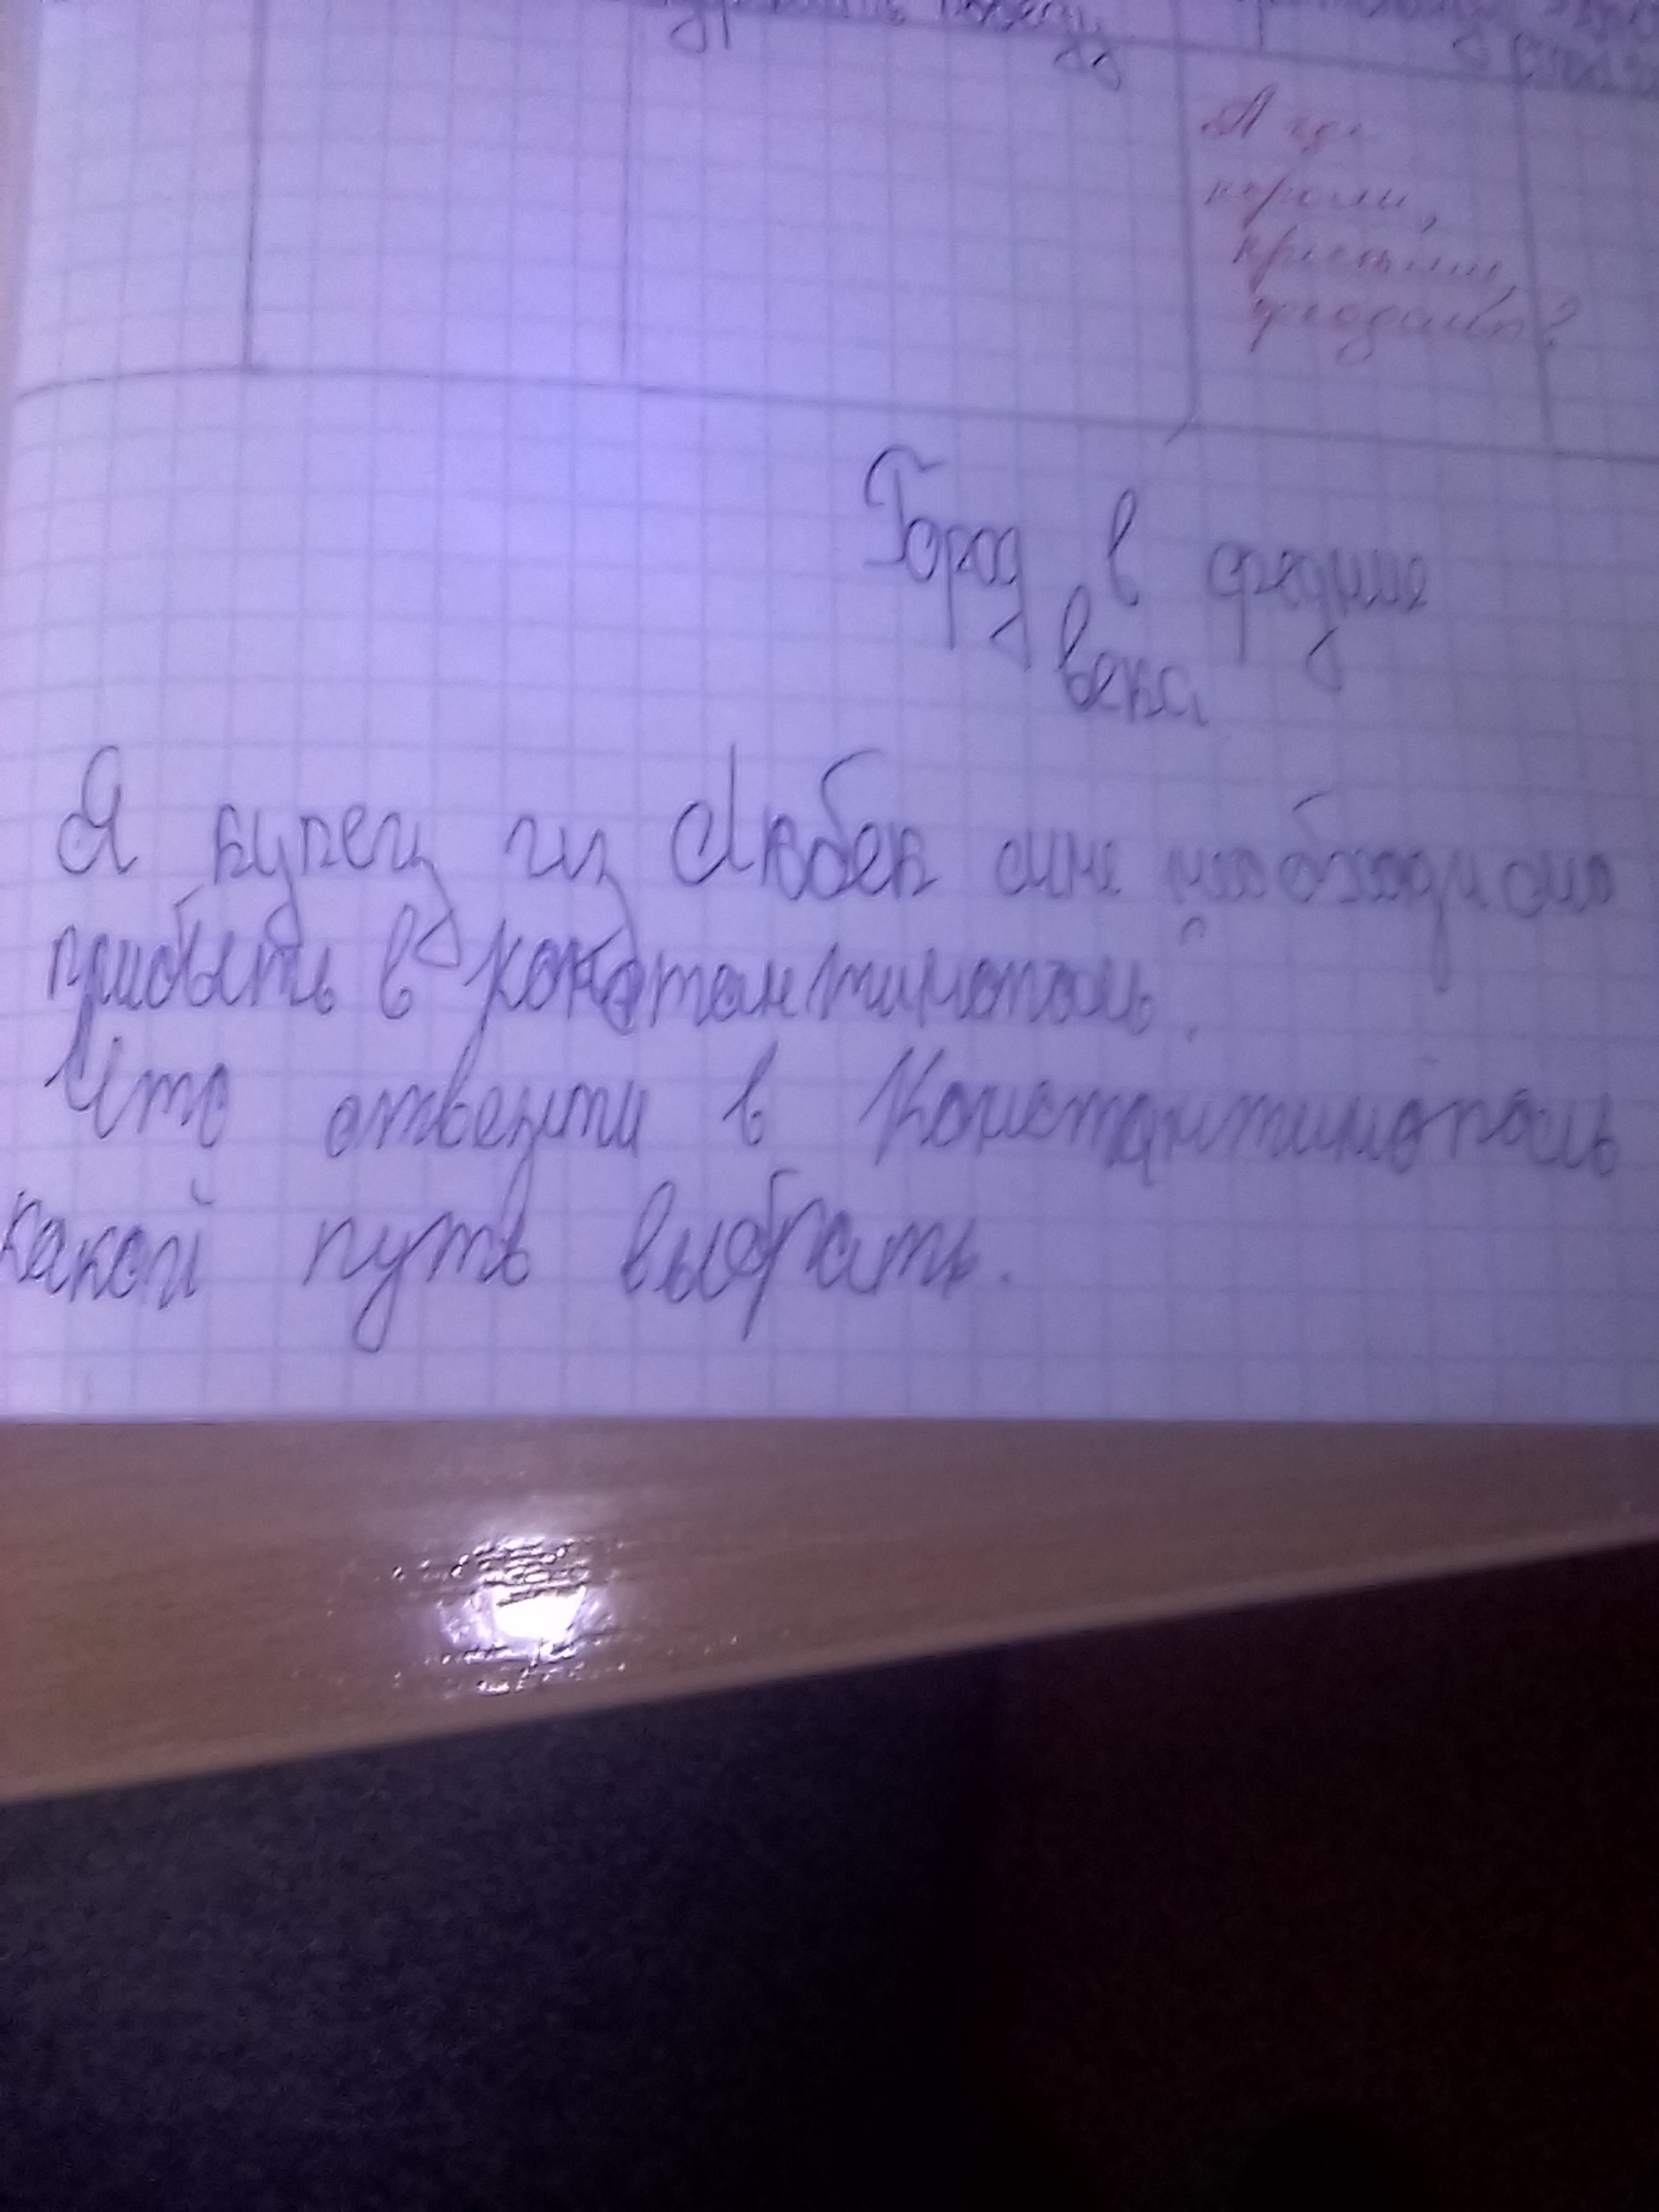 А где
короли,
крестьяне,
феодалы?
Город в средние
века
Я купец из Любек мне необходимо
прибыть в константинополь.
Что отвезти в Константинополь
какой путь выбрать.